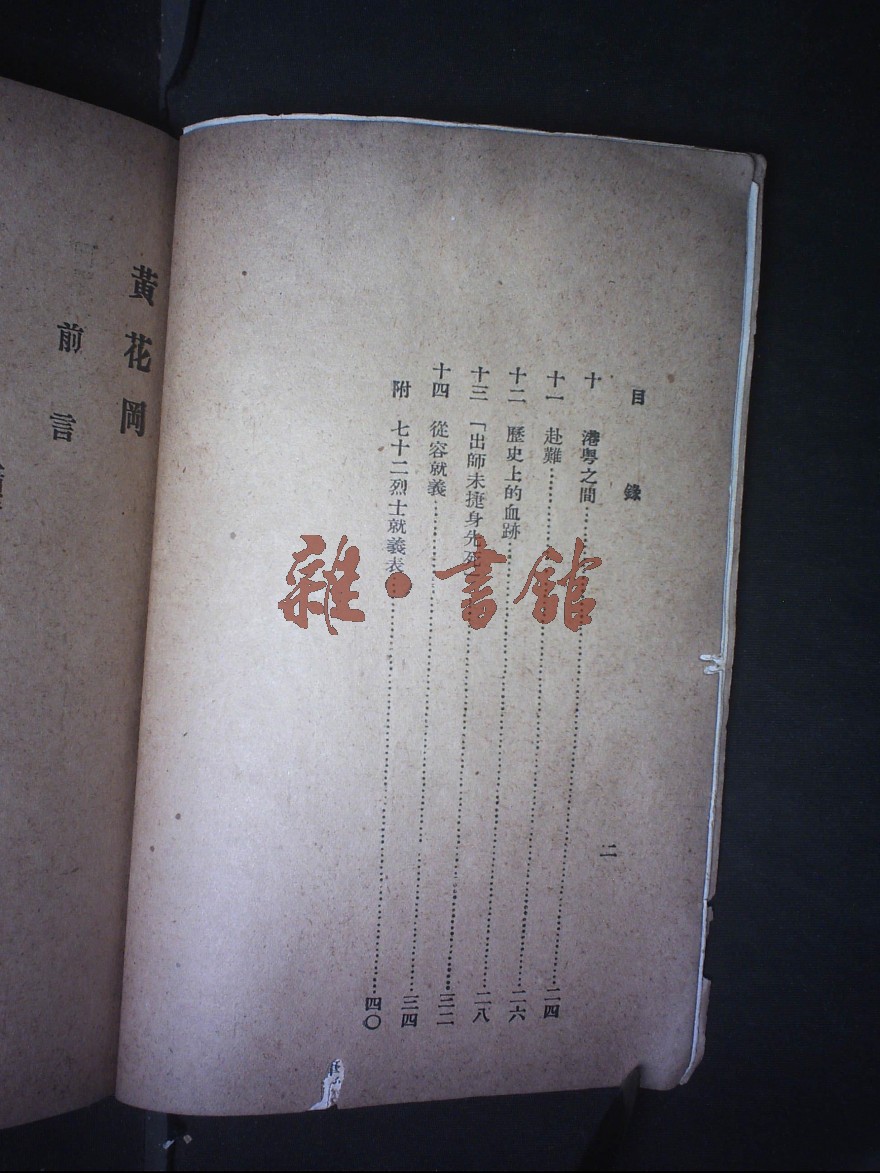 目錄
二
十 港粵之間……二四
十一 赴難……二六
十二 歷史上的血跡……二八
十三 「出師未捷身先死……三二
十四 從容就義……三四
附 七十二烈士就義表……四〇
黃花岡
前言
雜·書館